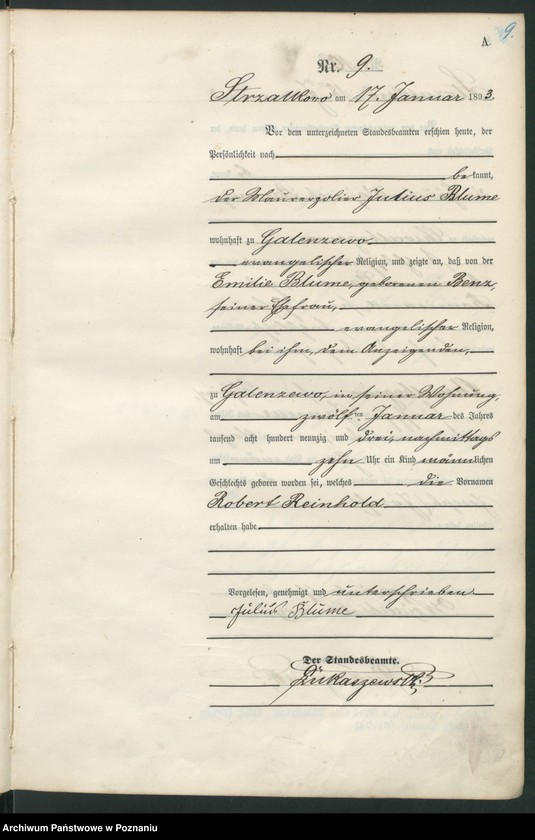 9.
A.
Nr. 9.
Strzalkowo am 17. Januar 1893.
Vor dem unterzeichneten Standesbeamten erschien heute, der
Persönlichkeit nach
bekannt,
der Maurerpolier Julius Blume
wohnhaft zu Galenzewo
evangelischer Religion, und zeigte an, daß von der
Emilie Blume, geborenen Benz,
seiner Ehefrau,
evangelischer Religion,
wohnhaft bei ihm, dem Anzeigenden,
zu Galenzewo, in seiner Wohnung,
am zwölf ten Januar des Jahres
tausend acht hundert neunzig und drei, nachmittags
um zehn Uhr ein Kind männlichen
Geschlechts geboren worden sei, welches die Vornamen
Robert Reinhold
erhalten habe.
Vorgelesen, genehmigt und unterschrieben
Julius Blume
Der Standesbeamte.
Lukaszewski
Archiwum Państwowe w Poznaniu